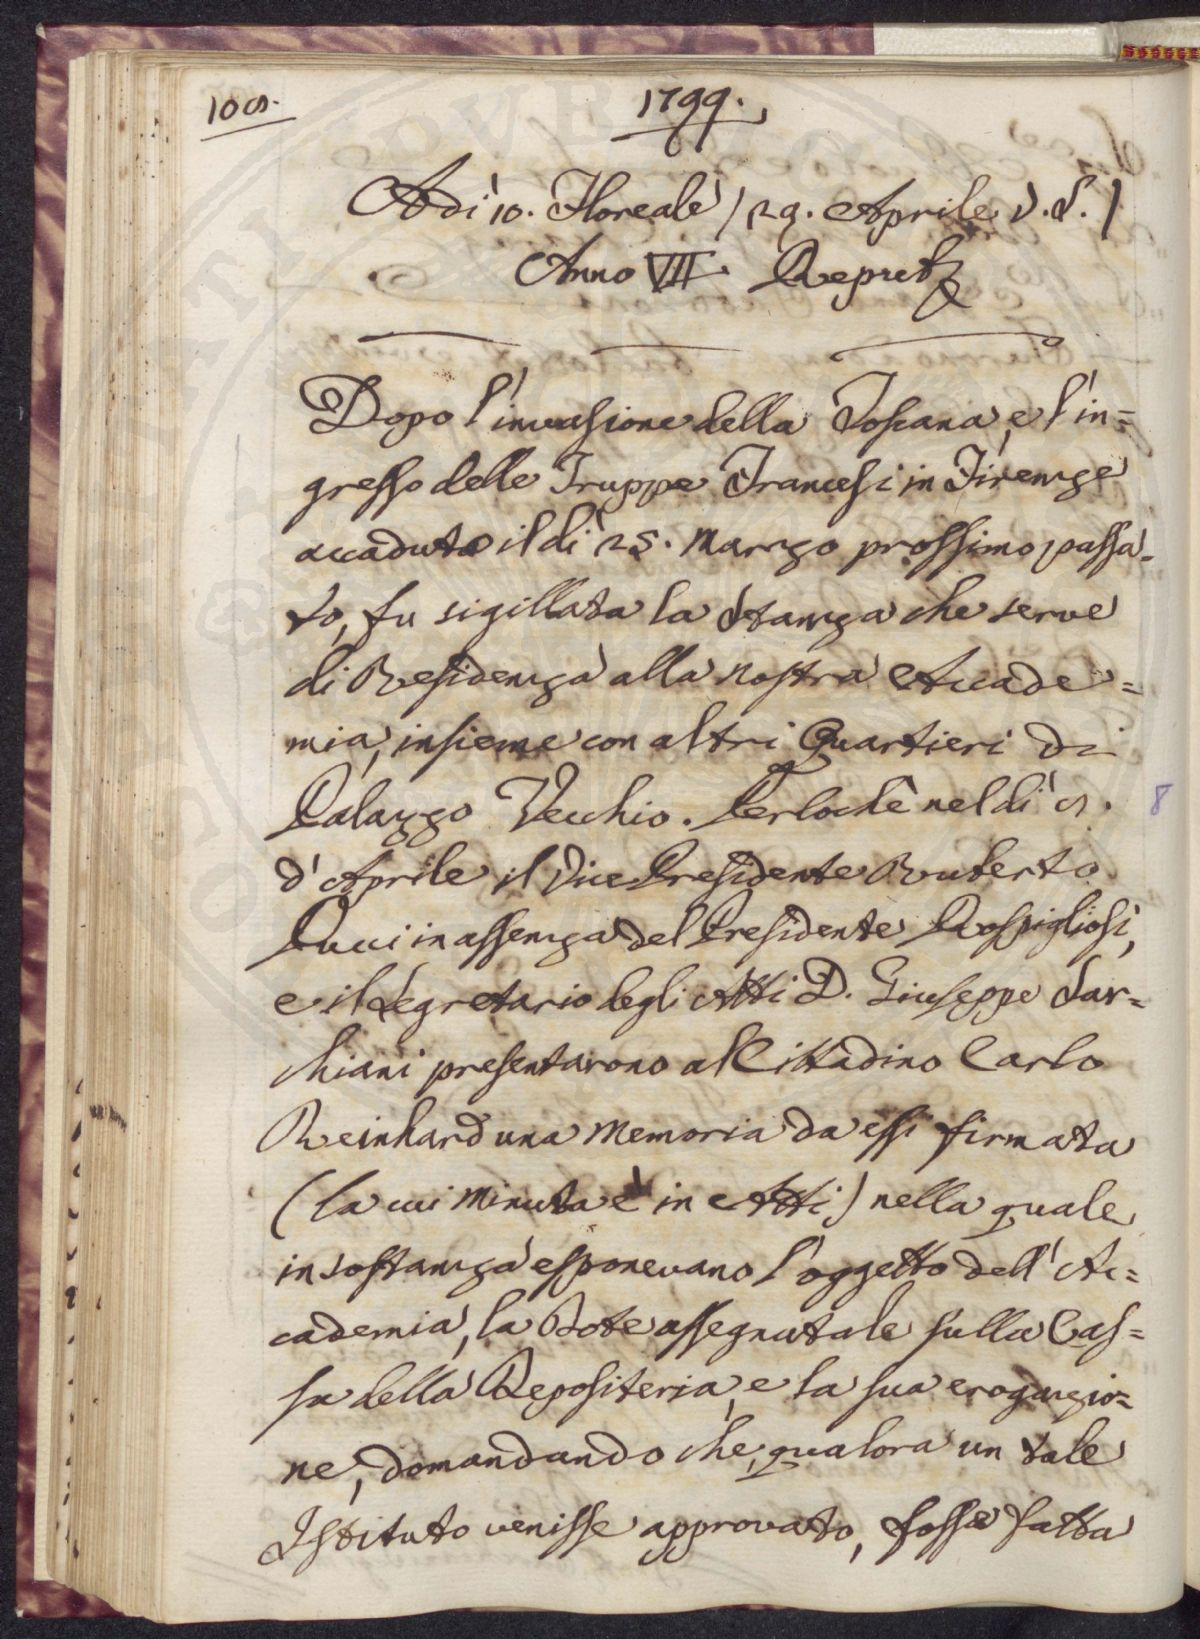 1799.
Adì 10. Floreale / 29. Aprile V.S. /
Anno VII Repub
Dopo l'invasione della Toscana, e l'in=
gresso delle Truppe Francesi in Firenze
accaduto il dì 25. Marzo prossimo passa=
to, fu sigillata la Stanza che serve
di Residenza alla nostra Accade=
mia, insieme con altri Quartieri di
Palazzo Vecchio. Perlochè nel dì
8
d'Aprile il Vice Presidente Ruberto
Pucci in assenza del Presidente Rospigliosi,
e il Segretario degli Atti D. Giuseppe Sar=
chiani presentarono al Cittadino Carlo
Reinhard una Memoria da essi firmata
(la cui Minuta è in Atti) nella quale
in sostanza esponevano l'oggetto dell'Ac=
cademia, la Dote assegnatale sulla Cas=
sa della Depositeria, e la sua erogazio=
ne, domandando che, qualora un tale
Istituto venisse approvato, fosse fatta